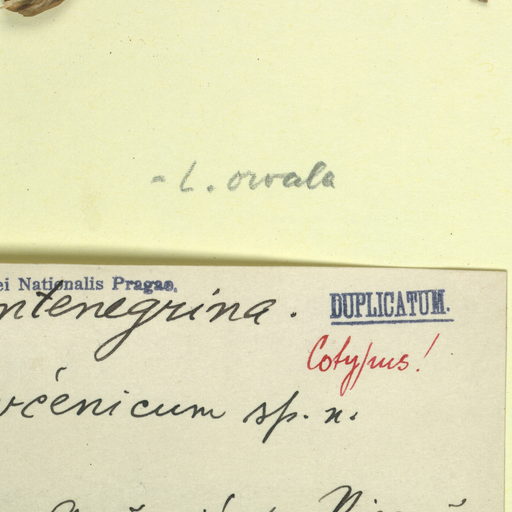 - L. orvala
ei Nationalis Pragae.
ntenegrina.
DUPLICATUM.
Cotypus!
včenicum sp. n.